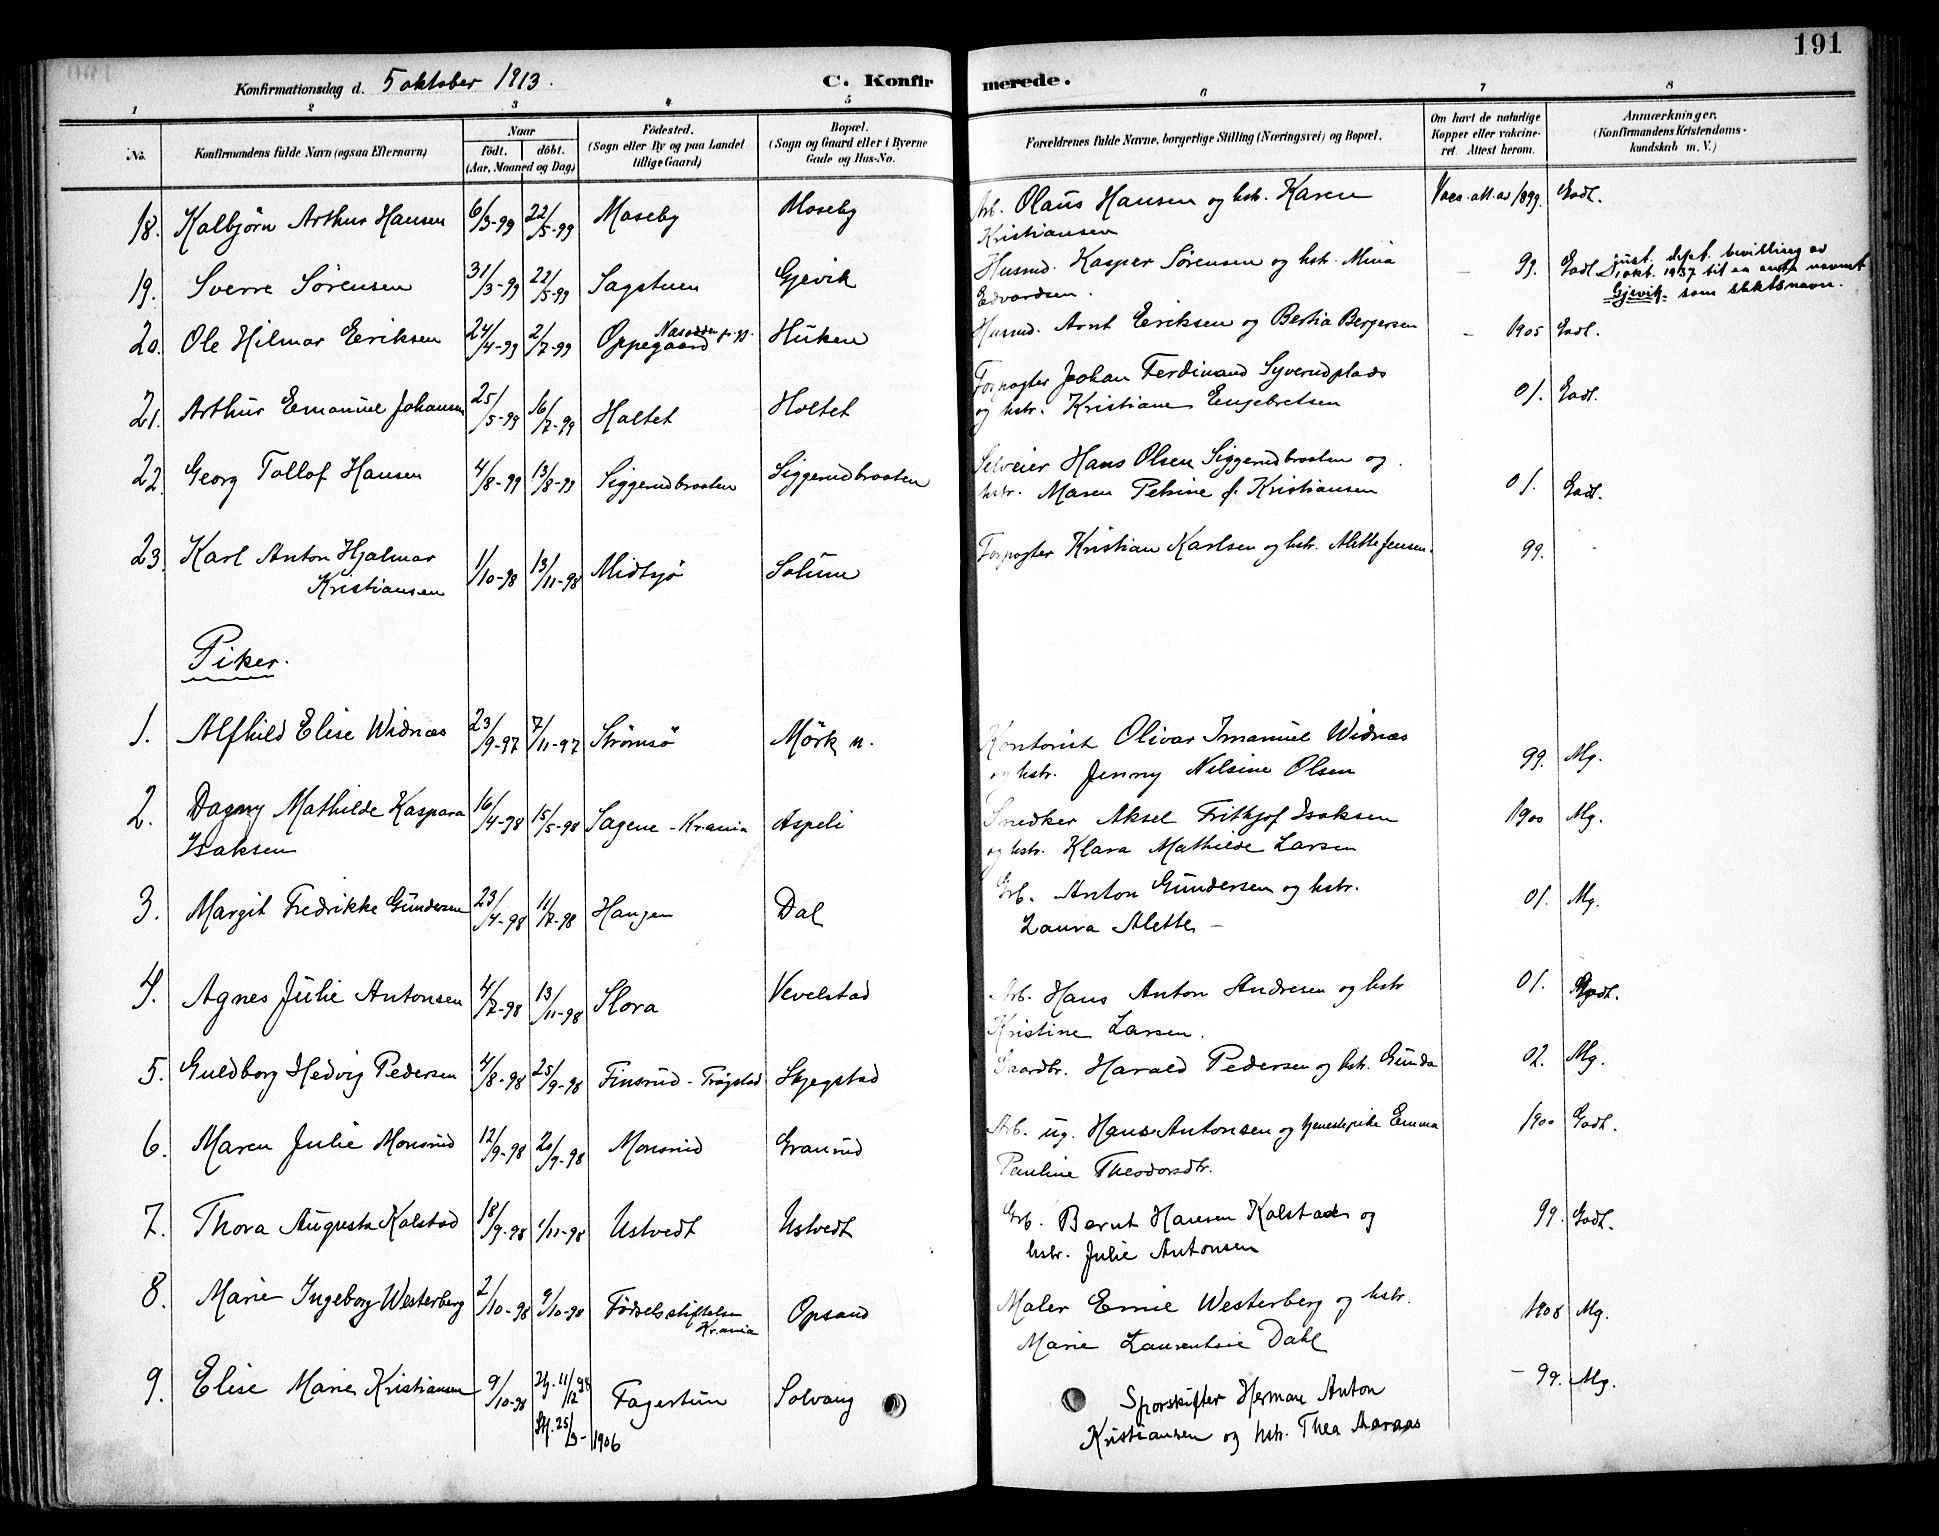 191
Konfirmationsdag d. 5 oktober 1913.
C. Konfirmerede.
1 2 3 4 5 6 7 8
No.
Konfirmandens fulde Navn (ogsaa Efternavn)
Naar
født. døbt.
(Aar, Maaned og Dag)
Fødested.
(Sogn eller By og paa Landet
tillige Gaard)
Bopæl.
(Sogn og Gaard eller i Byerne
Gade og Hus-No.
Forældrenes fulde Navne, borgerlige Stilling (Næringsvei) og Bopæl.
Om havt de naturlige
Kopper eller vakcine-
ret. Attest herom.
Anmærkninger.
(Konfirmandens Kristendoms-
kundskab m. V.)
18. Kolbjørn Arthur Hansen 6/3-99 22/5-99 Moseby Moseby Arb. Olaus Hansen og hstr. Karen Vacs. att. av 1899. Godt.
Kristiansen
19. Sverre Sørensen 31/3-99 22/5-99 Sagstuen Gjevik Husmd. Kasper Sørensen og hstr. Mina - 99. Godt
Edvardsen.
just. dept. bevilling av
1 okt. 1937 til aa anta navnet
Gjevik som slektsnavn.
20. Ole Hilmar Eriksen 24/4-99 2/7-99 Oppegaard Nesodden pr.gj. Huken Husmd. Arnt Eriksen og Bertia Bergersen - 1905 Godt.
21. Arthur Emanuel Johansen 25/5-99 16/7-99 Holtet Holtet Forpagter Johan Ferdinand Syverudplads
og hstr. Kristiane Engebretsen 01. Godt.
22. Georg Tollof Hansen 4/8-99 13/8-99 Siggerudbraaten Siggerudbraaten Selveier Hans Olsen Siggerudbraaten og
hstr. Maren Petrine f. Kristiansen 01. Godt.
23. Karl Anton Hjalmar
Kristiansen 1/10-98 13/11-98 Midtsjø Solum Forpagter Kristian Karlsen og hstr. Alette Jensen. 99.
Piker.
1. Alfhild Elise Widnæs 23/9-97 7/11-97 Strømsø Mørk n. Kontorist Olivar Imanuel Widnæs
og hstr. Jenny Nilsine Olsen 99. Mg.
2. Dagny Mathilde Kaspara
Isaksen 16/4-98 15/5-98 Sagene - Kr.ania Aspeli Snedker Aksel Frithjof Isaksen 1900 Mg.
og hstr. Klara Mathilde Larsen
3. Margit Fredrikke Gundersen 23/4-98 11/7-98 Haugen Dal Grb. Anton Gundersen og hstr. 01. Mg.
Laura Alette -
4. Agnes Julie Antonsen 4/7-98 13/11-98 Slora Vevelstad Arb. Hans Anton Andresen og hstr 01. Godt.
Kristine Larsen.
5. Guldborg Hedvig Pedersen 4/8-98 25/9-98 Finsrud - Trøgstad Skjegstad Gaardbr. Harald Pedersen og hstr. Gunda 02. Mg.
6. Maren Julie Monsrud 12/9-98 20/9-98 Monsrud Granrud Arb. ug. Hans Antonsen og tjenestepike Emma 1900 Godt.
Pauline Theodorsdtr.
7. Thora Augusta Kolstad 18/9-98 1/11-98 Ustvedt Ustvedt Grb. Bernt Hansen Kolstad og 99. Godt.
hstr. Julie Antonsen
8. Marie Ingeborg Westerberg 2/10-98 9/10-98 Fødselsstiftelsen
Kr.ania Opsand Maler Emil Westerberg og hstr. 1908 Mg.
Marie Laurentsie Dahl
9. Elise Marie Kristiansen 9/10-98 Hj. 11/12 98
St. 25/9-1906 Fagertun Solvang Sporskifter Herman Anton - 99. Mg.
Kristiansen og hstr. Thea Moraas